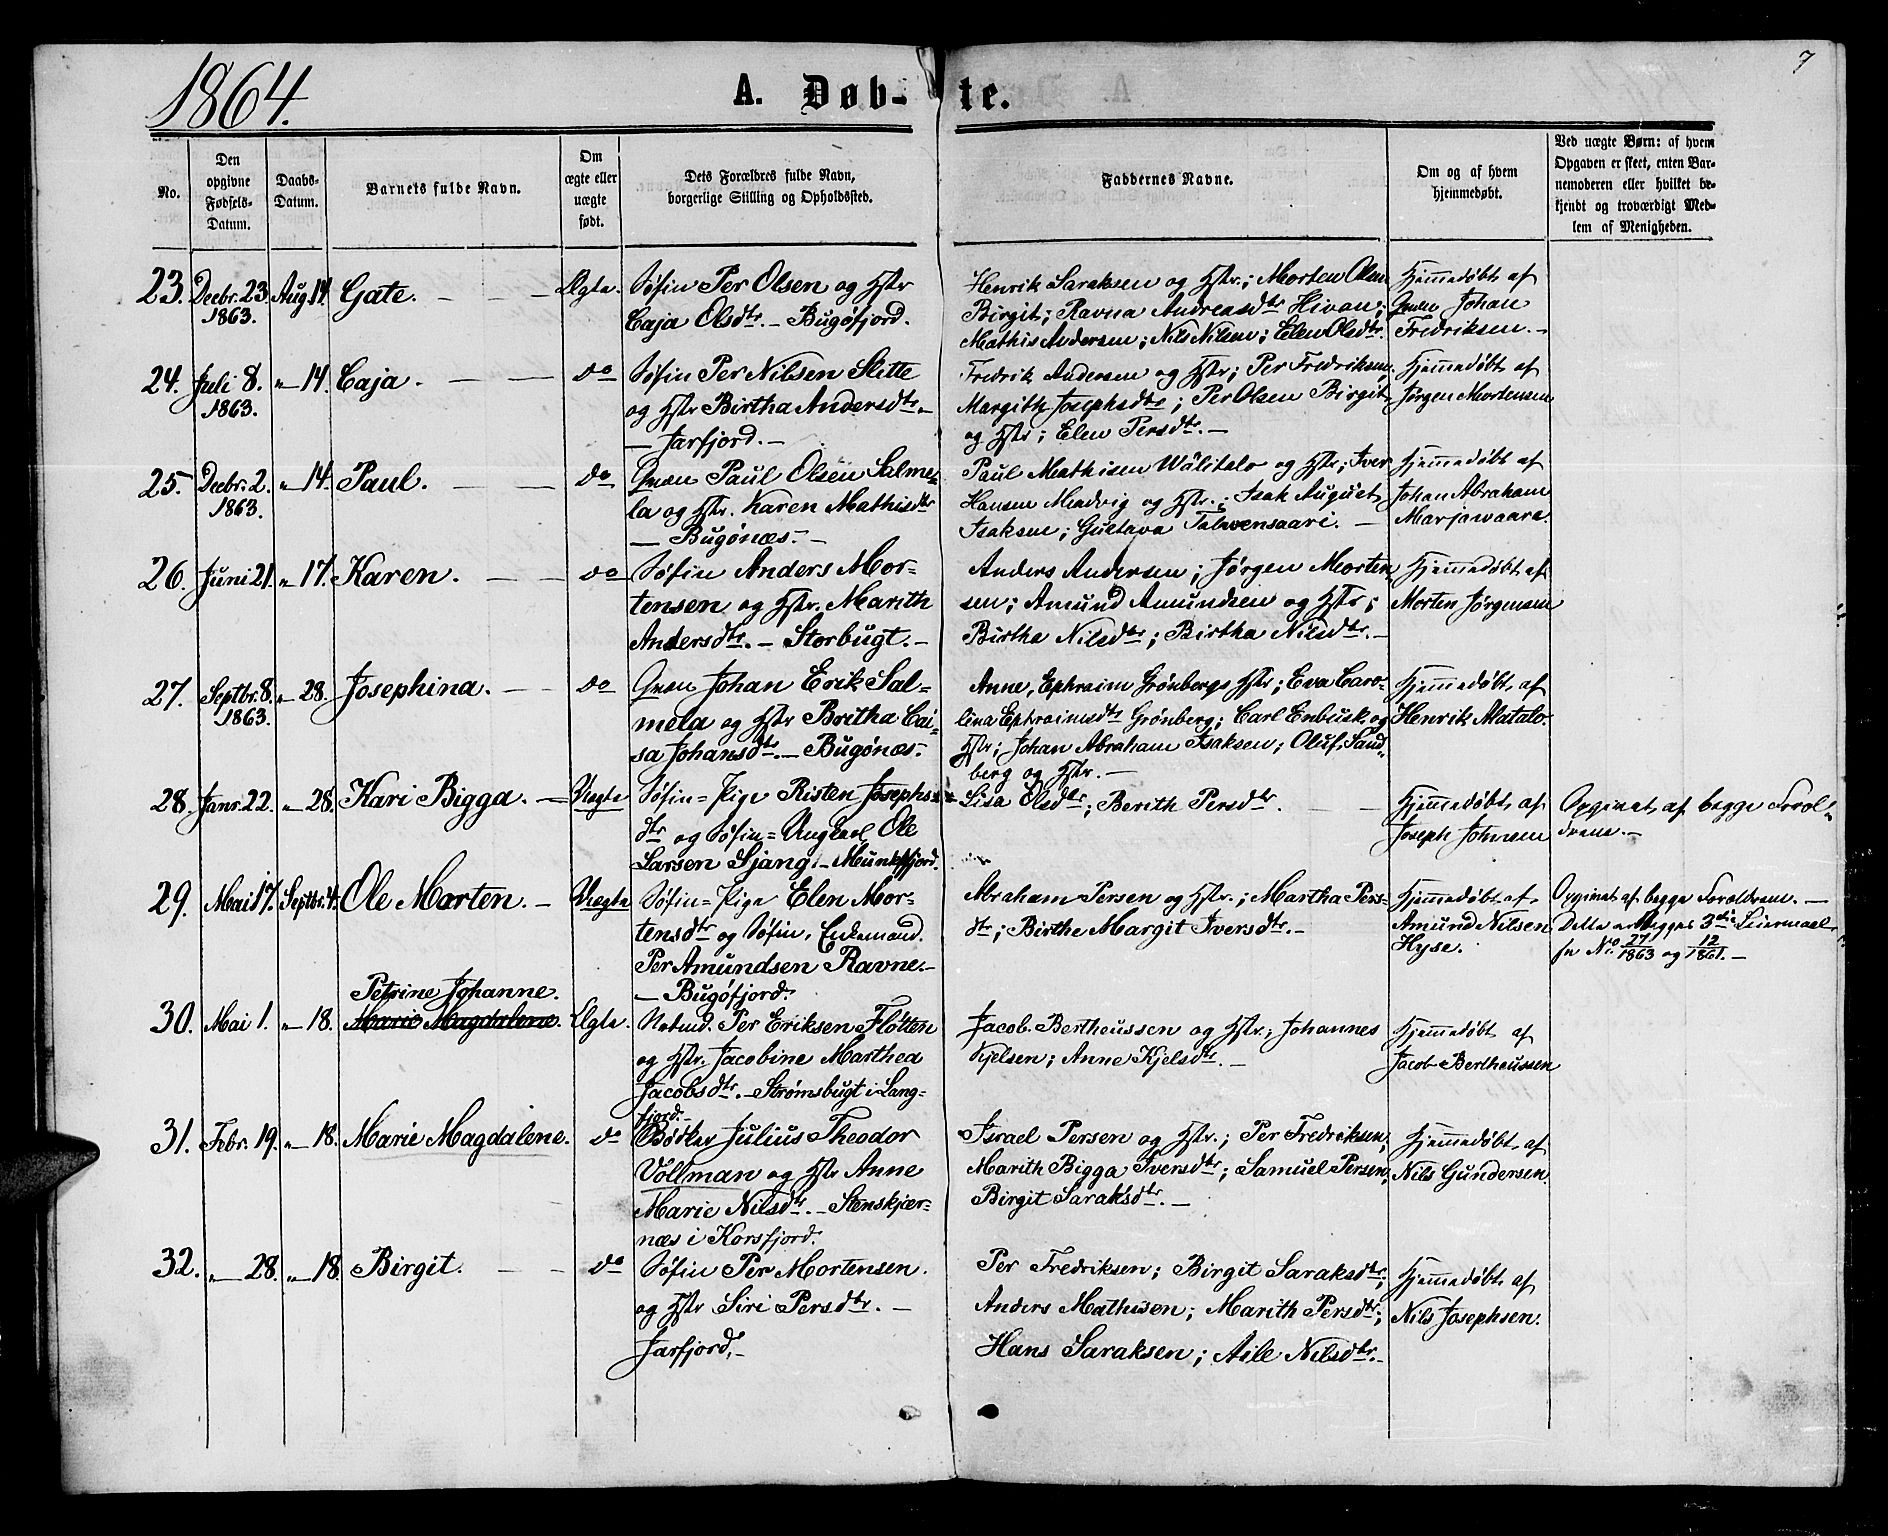 1864.
A. Døb-te.
7
No.
Den opgivne Fødsels-Datum.
Daabs-Datum.
Barnets fulde Navn.
Om ægte eller uægte født.
Dets Forældres fulde Navn,
borgerlige Stilling og Opholdssted.
Faddernes Navne.
Om og af hvem
hjemmedøbt.
Ved uægte Børn: af hvem
Opgaven er skeet, enten Bar-
nemoderen eller hvilket be-
kjendt og troværdigt Med-
lem af Menigheden.
23. Decbr. 23 1863. Aug. 14. Gate. Ægte.
Søfin Per Olsen og Hstr
Caja Olsdtr. - Bugøfjord.
Henrik Saraksen og Hstr.; Morten Olsen
Birgit; Ravna Andreasdtr Hivan;
Mathis Andersen; Nils Nilsen; Elen Olsdtr.
Hjemmedøbt af
Qvæn Johan
Fredriksen. -
24. Juli 8. 1863. " 14. Caja. do
Søfin Per Nilsen Slitte
og Hstr Birtha Andersdtr. -
- Jarfjord. -
Fredrik Andersen og Hstr; Per Fredriksen,
Margith Josephsdtr; Per Olsen Birgit
og Hstr; Elen Persdtr. -
Hjemmedøbt af
Jørgen Mortensen
25. Decbr. 2. 1863. " 14. Paul. do
Qvæn Paul Olsen Salme-
la og Hstr. Karen Mathisdtr
- Bugønæs. -
Paul Mathisen Wälitalo og Hstr; Iver
Hansen Madvig og Hstr.; Isak August
Isaksen; Gustava Talvensaari. -
Hjemmedøbt af
Johan Abraham
Marjawaara.
26. Juni 21. " 17. Karen. do
Søfin Anders Mor-
tensen og Hstr. Marith
Andersdtr. - Storbugt. -
Anders Andersen; Jørgen Morten
sen; Amund Amundsen og Hstr;
Birtha Nilsdtr; Birtha Nilsdtr. -
Hjemmedøbt af
Morten Jørgensen
27. Septbr. 8. 1863. " 28. Josephina. do
Qvæn Johan Erik Sal-
mela og Hstr Britha Cai-
sa Johansdtr. - Bugønæs. -
Anne, Ephraim Grønbergs Hstr; Eva Caro-
lina Ephraimsdtr Grønberg; Carl Enbusk og
Hstr; Johan Abraham Isaksen; Oluf Sand-
berg og Hstr. -
Hjemmedøbt af
Henrik Alatalo.
28. Janr. 22. " 28. Kari Bigga. Uægte
Søfin-Pige Risten Josephs-
dtr og Søfin-Ungkarl Ole
Larsen Sjang. - Munkefjord.
Lisa Olsdtr; Berith Persdtr.
Hjemmedøbt af
Joseph Johnsen
Opgivet af begge Foræl-
drene. -
29. Mai 17. Septbr. 4. Ole Morten. - Uægte
Søfin-Pige Elen Mor-
tensdtr og Søfin, Enkemand.
Per Amundsen Ravna. -
- Bugøfjord.
Abraham Persen og Hstr.; Martha Pers-
dtr; Birthe Margit Iversdtr. -
Hjemmedøbt af
Amund Nilsen
Hyse.
Opgivet af begge Forældrene. -
Dette er Begges 3die Leiermaal
No. 27/1863 og 12/1861. -
30. Mai 1. " 18. Petrine Johanne.
Marie Magdalene. Ægte.
Nordmd. Per Eriksen Fløtten
og Hstr. Jacobine Marthea
Jacobsdtr. - Strømsbugt i Lang-
fjord. -
Jacob Bertheussen og Hstr; Johannes
Kjelsen; Anne Kjelsdtr. -
Hjemmedøbt af
Jacob Bertheussen
31. Febr. 19. " 18. Marie Magdalene. do
Bødker Julius Theodor
Vollman og Hstr Anne
Marie Nilsdtr. - Stenskjær-
næs i Korsfjord.
Israel Persen og Hstr.; Per Fredriksen;
Marith Bigga Iversdtr; Samuel Persen;
Birgit Saraksdtr. -
Hjemmedøbt af
Nils Gundersen
32. " 28. " 18. Birgit. do
Søfin Per Mortensen.
og Hstr Siri Persdtr. -
Jarfjord. -
Per Fredriksen; Birgit Saraksdtr;
Anders Mathisen; Marith Persdtr;
Hans Saraksen; Aile Nilsdtr. -
Hjemmedøbt af
Nils Josephsen.